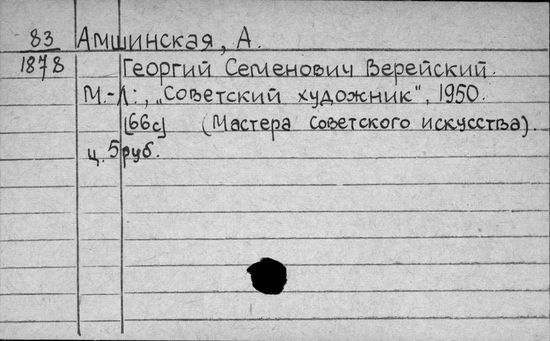 83 Амшинская, А.
1878 Георгий Семенович Верейский.
М.-Л:, „Советский художник", 1950.
[66с] (Мастера советского искусства).
ц. 5 руб.